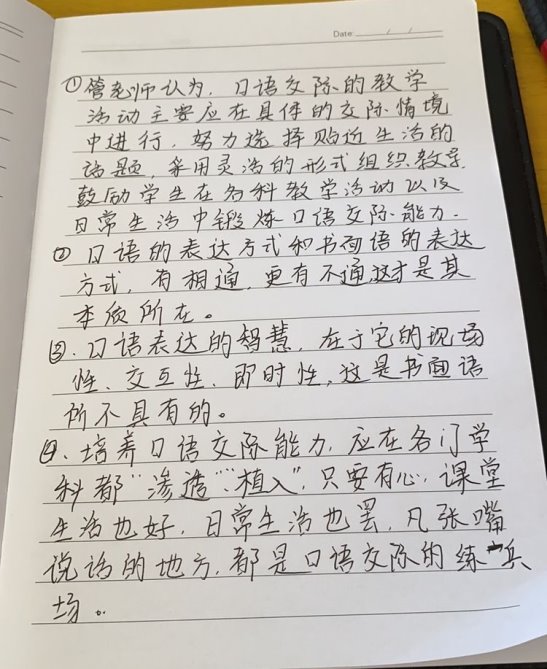 Date:
①管老师认为，口语交际的教学
活动主要应在具体的交际情境
中进行，努力选择贴近生活的
话题，采用灵活的形式组织教学
鼓励学生在各科教学活动以及
日常生活中锻炼口语交际能力.
② 口语的表达方式和书面语的表达
方式，有相通，更有不通这才是其
本质所在。
③. 口语表达的智慧，在于它的现场
性、交互性、即时性，这是书面语
所不具有的。
④. 培养口语交际能力，应在各门学
科都"渗透"、"植入"，只要有心，课堂
生活也好，日常生活也罢，凡张嘴
说话的地方，都是口语交际的练兵
场。